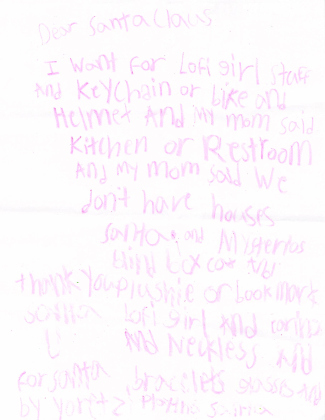 Dear Santa Claus
I want for Lofi girl stuff
And Keychain or bike and
Helmet And My mom said
Kitchen or Restroom
And My mom said We
don't have houses
Santa and Misterius
blind box cat And
thank you plushie or bookmark
Santa Lofi girl And
And Neckless And
for Santa bracelets glasses And
by